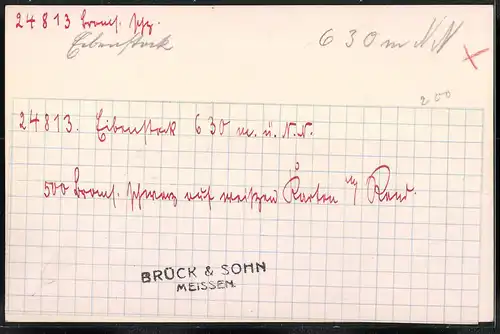 24813 Broms. schz.
Eibenstock 630 m NN
200
24813. Eibenstock 630 m. ü. N.N.
500 Broms. schwarz auf weissen Karton m/ Rand.
BRÜCK & SOHN
MEISSEN.